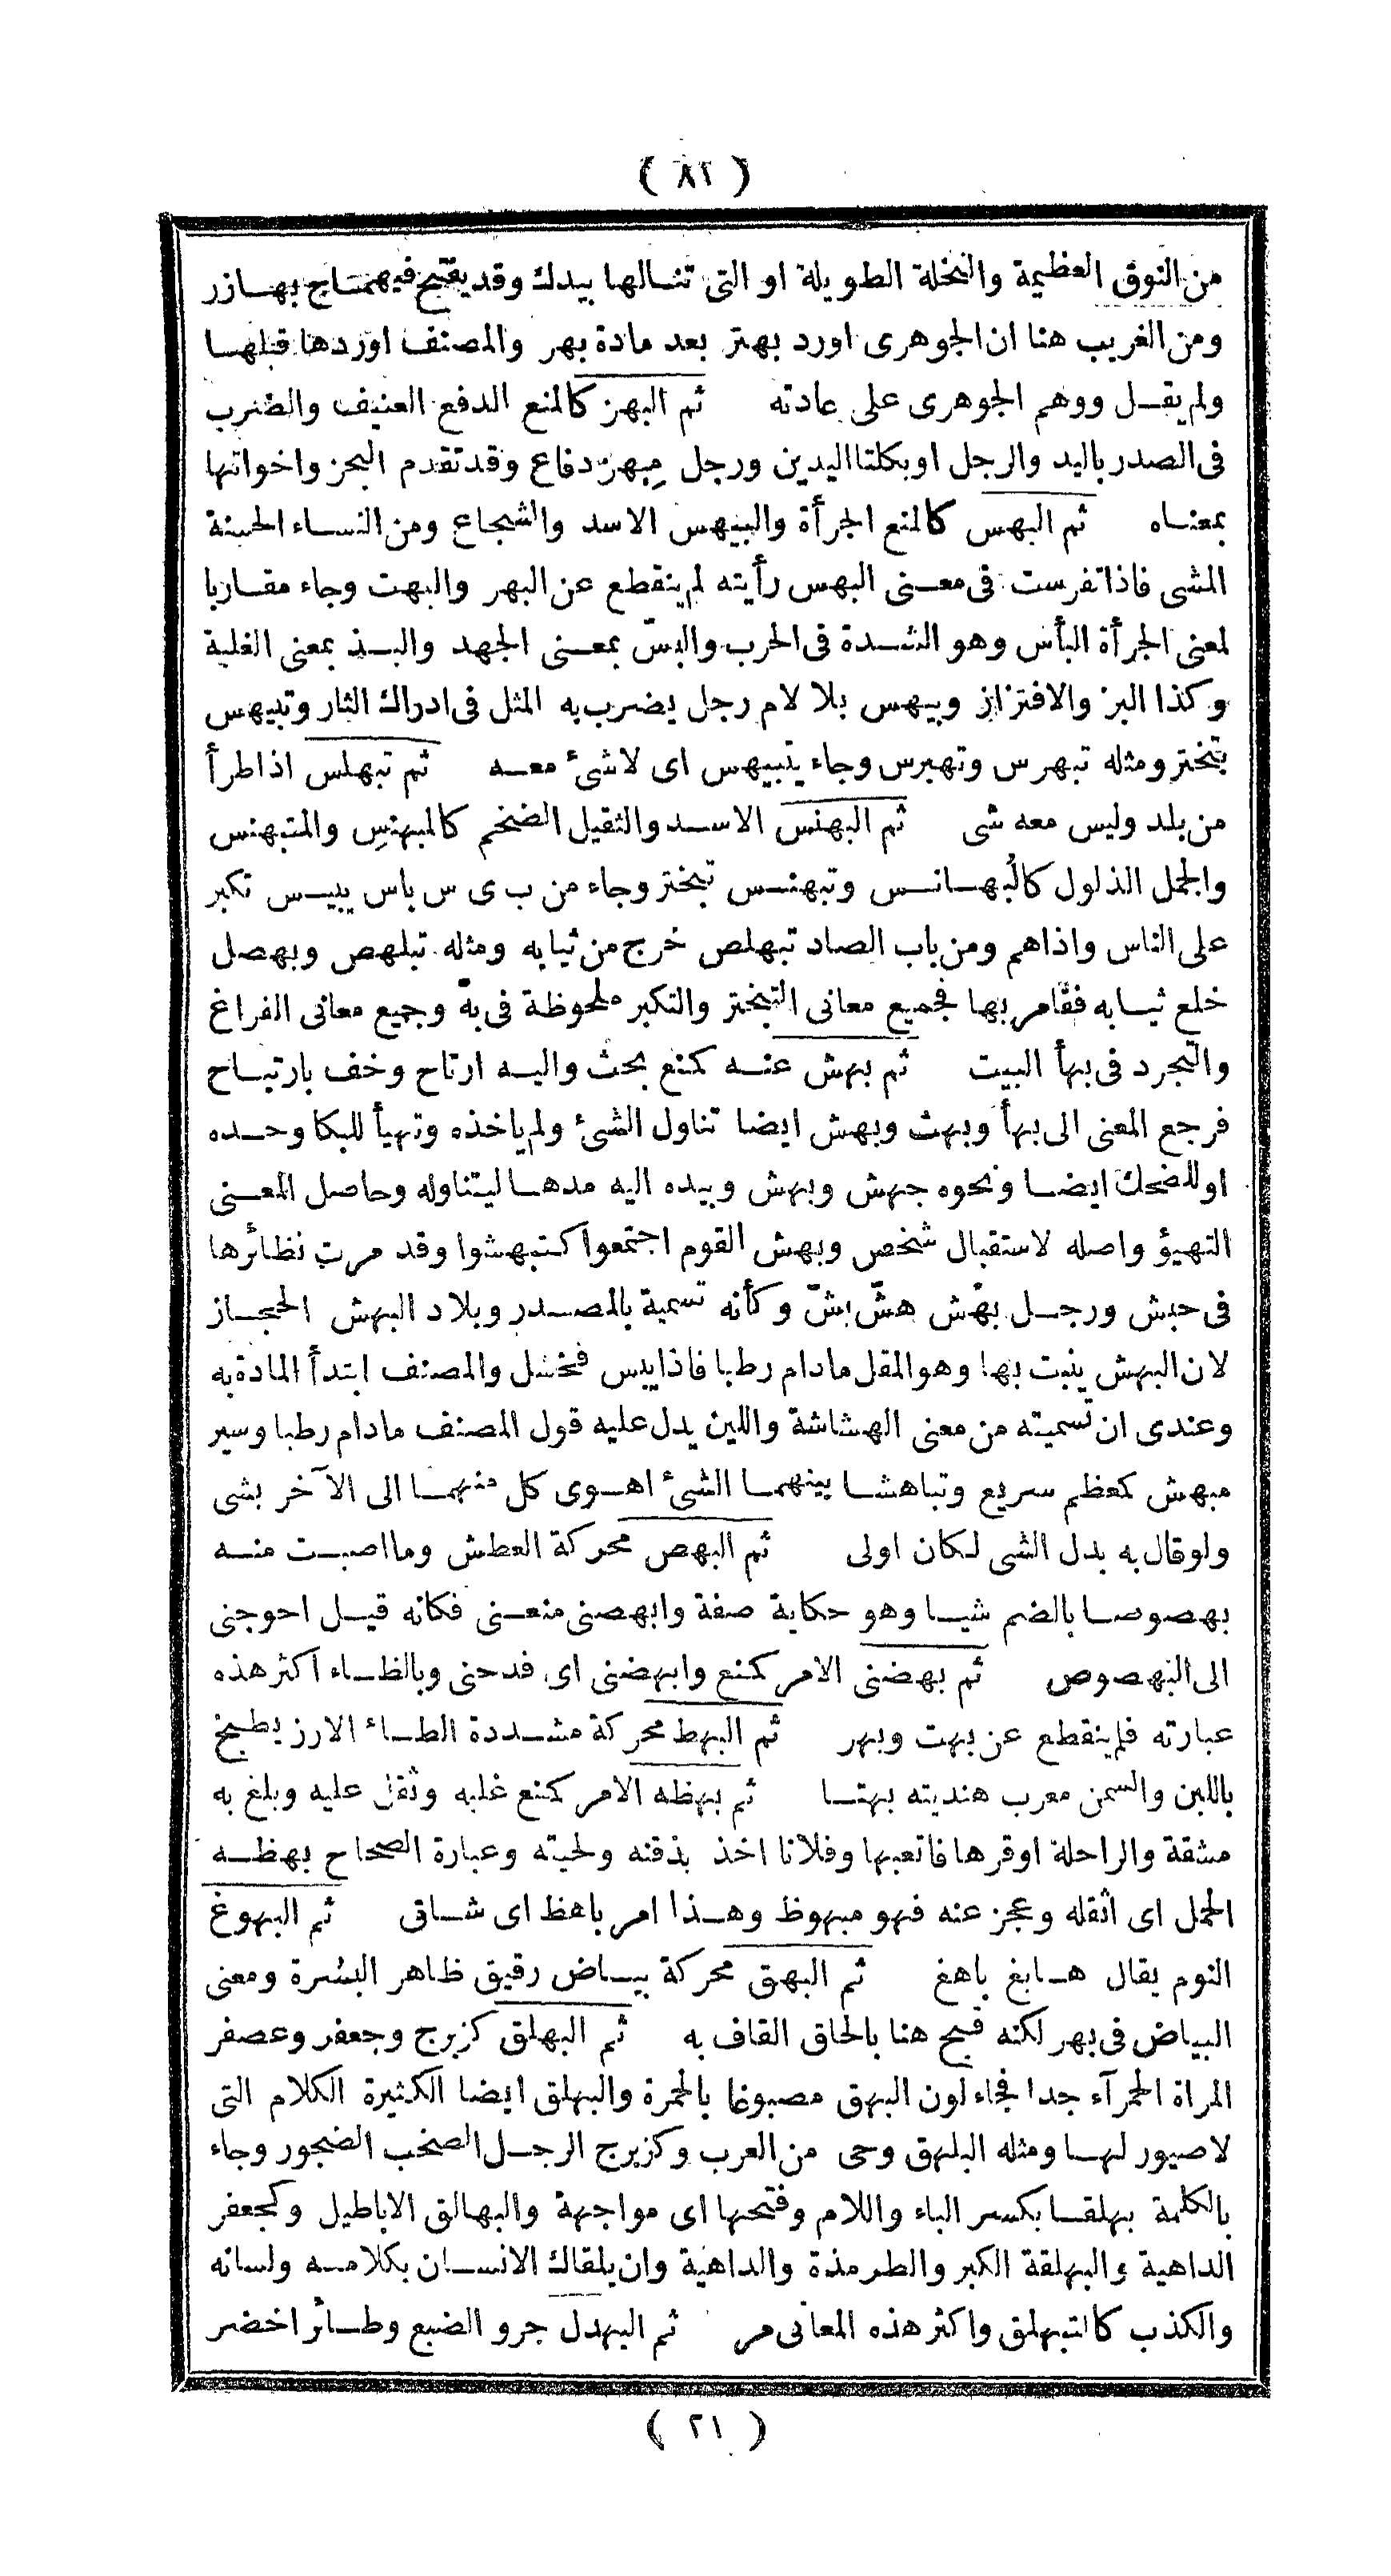 ( ٨٢ )
من النوق العظيمة والنخلة الطويلة او التى تنالها بيدك وقد يفتح فيهما ج بهازر
ومن الغريب هنا ان الجوهرى اورد بهتر بعد مادة بهر والمصنف اوردها قبلها
ولم يقل ووهم الجوهرى على عادته ثم البهز كالمنع الدفع العنيف والضرب
فى الصدر باليد والرجل او بكلتا اليدين ورجل مِبهز دفاع وقد تقدم البحز واخواتها
بمعناه ثم البهس كالمنع الجرأة والبيهس الاسد والشجاع ومن النساء الحسنة
المشى فاذا تفرست فى معنى البهس رأيته لم ينقطع عن البهر والبهت وجاء مقاربا
لمعنى الجرأة البأس وهو الشدة فى الحرب والبسّ بمعنى الجهد والبذ بمعنى الغلبة
وكذا البز والافتزاز وبيهس بلا لام رجل يضرب به المثل فى ادراك الثار وتبيهس
تبختر ومثله تبهرس وتهبرس وجاء يتبيهس اى لا شئ معه ثم تبهلس اذا طرأ
من بلد وليس معه شى ثم البهنس الاسد والثقيل الضخم كالمبهنِس والمتبهنس
والجمل الذلول كالبُهانس وتبهنس تبختر وجاء من ب ى س باس يبيس تكبر
على الناس واذاهم ومن باب الصاد تبهلص خرج من ثيابه ومثله تبلهص وبهصل
خلع ثيابه فقامر بها فجميع معانى التبختر والتكبر ملحوظة فى بهّ وجميع معانى الفراغ
والتجرد فى بهأ البيت ثم بهش عنه كمنع بحث واليه ارتاح وخف بارتياح
فرجع المعنى الى بهأ وبهت وبهش ايضا تناول الشئ ولم ياخذه وتهيأ للبكا وحده
او للضحك ايضا ونحوه جهش وبهش وبيده اليه مدها ليتناوله وحاصل المعنى
التهيؤ واصله لاستقبال شخص وبهش القوم اجتمعوا كتبهشوا وقد مرت نظائرها
فى حبش ورجل بهْش هشّ بشّ وكأنه تسمية بالمصدر وبلاد البهش الحجاز
لان البهش ينبت بها وهو المقل مادام رطبا فاذا يبس فخشل والمصنف ابتدأ المادة به
وعندى ان تسميته من معنى الهشاشة واللين يدل عليه قول المصنف مادام رطبا وسير
مبهش كمعظم سريع وتباهشا بينهما الشئ اهوى كل منهما الى الآخر بشى
ولو قال به بدل الشى لكان اولى ثم البهص محركة العطش وما اصبت منه
بهصوصا بالضم شيا وهو حكاية صفة وابهصنى منعنى فكانه قيل احوجنى
الى البهصوص ثم بهضنى الامر كمنع وابهضنى اى فدحنى وبالظاء اكثر هذه
عبارته فلم ينقطع عن بهت وبهر ثم البهط محركة مشددة الطاء الارز يطبخ
باللبن والسمن معرب هنديته بهتا ثم بهظه الامر كمنع غلبه وثقل عليه وبلغ به
مشقة والراحلة اوقرها فاتعبها وفلانا اخذ بذقنه ولحيته وعبارة الصحاح بهظه
الحمل اى اثقله وعجز عنه فهو مبهوظ وهذا امر باهظ اى شاق ثم البهوغ
النوم يقال هابغ باهغ ثم البهق محركة بياض رقيق ظاهر البشرة ومعنى
البياض فى بهر لكنه قبح هنا بالحاق القاف به ثم البهلق كزبرج وجعفر وعصفر
المراة الحمرآء جدا فجاء لون البهق مصبوغا بالحمرة والبهلق ايضا الكثيرة الكلام التى
لا صيور لها ومثله البلهق وحى من العرب وكزبرج الرجل الصخب الضجور وجاء
بالكلمة بهلقا بكسر الباء واللام وفتحها اى مواجهة والبهالق الاباطيل وكجعفر
الداهية والبهلقة الكبر والطرمذة والداهية وان يلقاك الانسان بكلامه ولسانه
والكذب كالتبهلق واكثر هذه المعانى مر ثم البهدل جرو الضبع وطائر اخضر
( ٢١ )